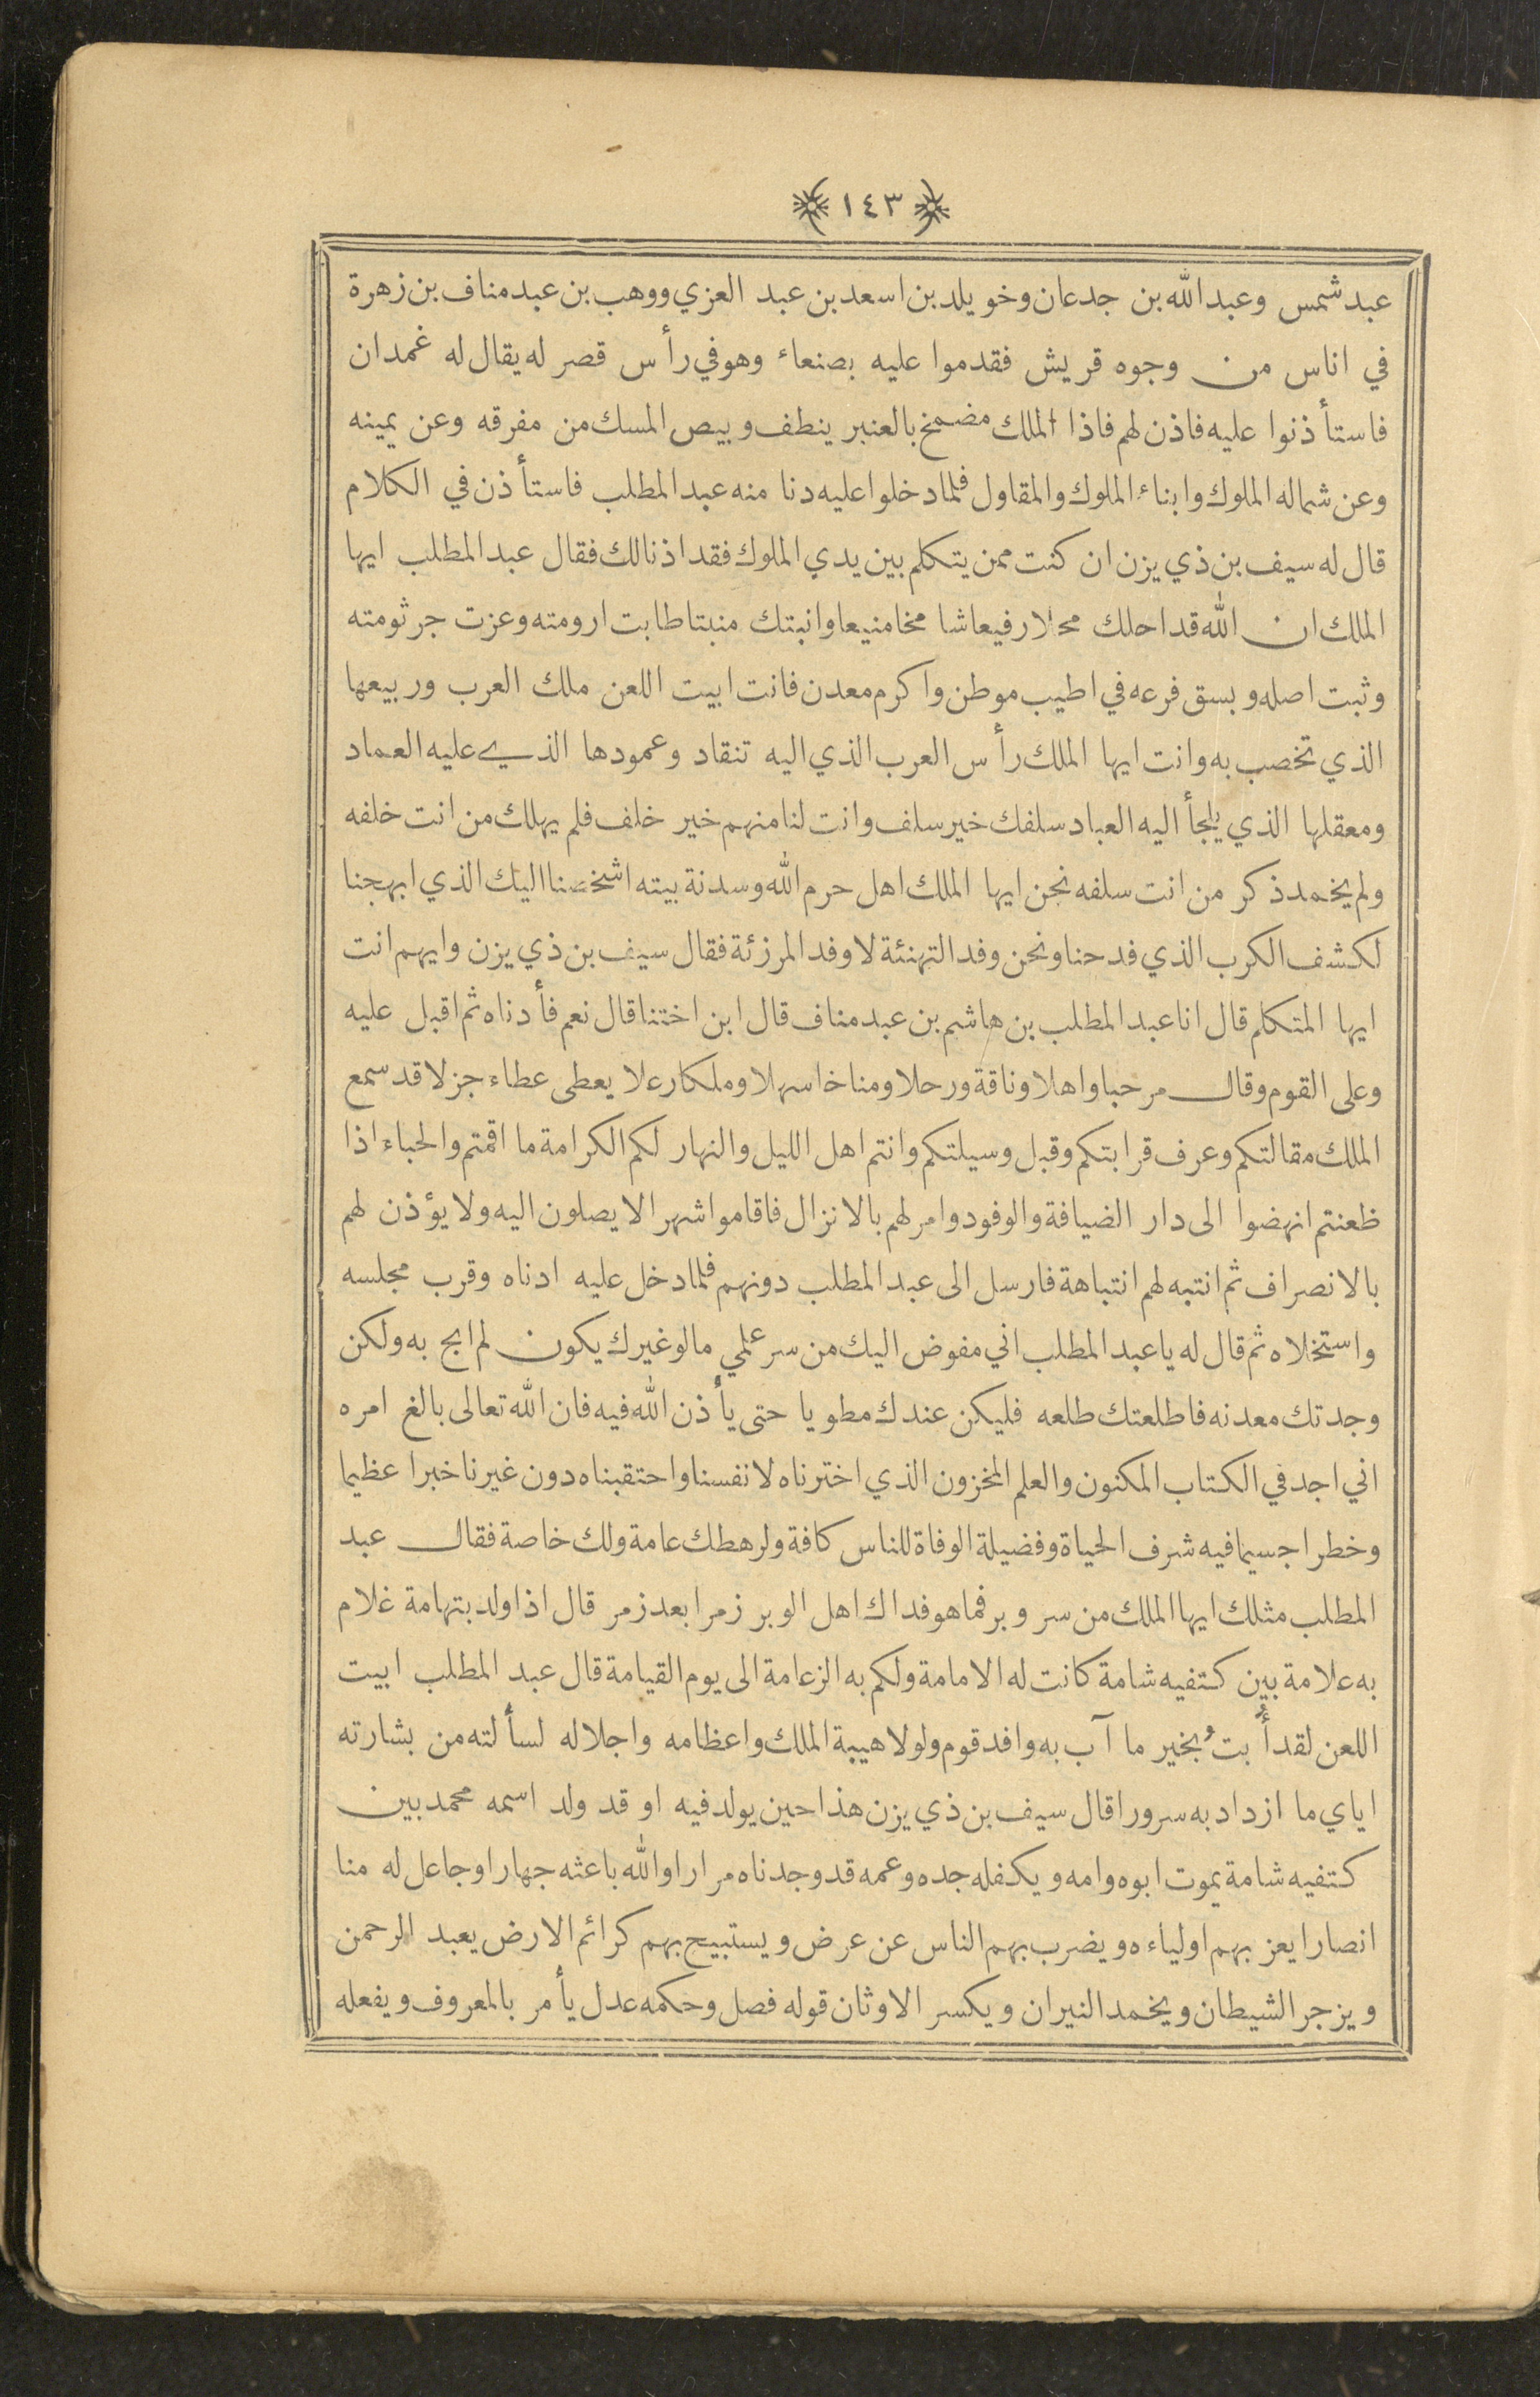 ١٤٣
عبد شمس وعبد الله بن جدعان وخويلد بن اسعد بن عبد العزي ووهب بن عبد مناف بن زهرة
في اناس من وجوه قريش فقدموا عليه بصنعاء وهو في رأس قصر له يقال له غمدان
فاستأذنوا عليه فاذن لهم فاذا الملك مضمخ بالعنبر ينطف وبيص المسك من مفرقه وعن يمينه
وعن شماله الملوك وابناء الملوك والمقاول فلما دخلوا عليه دنا منه عبد المطلب فاستأذن في الكلام
قال له سيف بن ذي يزن ان كنت ممن يتكلم بين يدي الملوك فقد اذنا لك فقال عبد المطلب ايها
الملك ان الله قد احلك محلا رفيعا شامخا منيعا وانبتك منبتا طابت ارومته وعزت جرثومته
وثبت اصله وبسق فرعه في اطيب موطن واكرم معدن فانت ابيت اللعن ملك العرب وربيعها
الذي تخصب به وانت ايها الملك رأس العرب الذي اليه تنقاد وعمودها الذي عليه العماد
ومعقلها الذي يلجأ اليه العباد سلفك خير سلف وانت لنا منهم خير خلف فلم يهلك من انت خلفه
ولم يخمد ذكر من انت سلفه نحن ايها الملك اهل حرم الله وسدنة بيته اشخصنا اليك الذي ابهجنا
لكشف الكرب الذي فدحنا ونحن وفد التهنئة لا وفد المرزئة فقال سيف بن ذي يزن وايهم انت
ايها المتكلم قال انا عبد المطلب بن هاشم بن عبد مناف قال ابن اختنا قال نعم فأدناه ثم اقبل عليه
وعلى القوم وقال مرحبا واهلا وناقة ورحلا ومناخا سهلا وملكا رعلا يعطى عطاء جزلا قد سمع
الملك مقالتكم وعرف قرابتكم وقبل وسيلتكم وانتم اهل الليل والنهار لكم الكرامة ما اقمتم والحباء اذا
ظعنتم انهضوا الى دار الضيافة والوفود وامر لهم بالانزال فاقاموا شهرا لا يصلون اليه ولا يؤذن لهم
بالانصراف ثم انتبه لهم انتباهة فارسل الى عبد المطلب دونهم فلما دخل عليه ادناه وقرب مجلسه
واستخلاه ثم قال له يا عبد المطلب اني مفوض اليك من سر علمي ما لو غيرك يكون لم ابح به ولكن
وجدتك معدنه فاطلعتك طلعه فليكن عندك مطويا حتى يأذن الله فيه فان الله تعالى بالغ امره
اني اجد في الكتاب المكنون والعلم المخزون الذي اخترناه لانفسنا واحتقبناه دون غيرنا خبرا عظيما
وخطرا جسيما فيه شرف الحياة وفضيلة الوفاة للناس كافة ولرهطك عامة ولك خاصة فقال عبد
المطلب مثلك ايها الملك من سر وبر فما هو فداك اهل الوبر زمرا بعد زمر قال اذا ولد بتهامة غلام
به علامة بين كتفيه شامة كانت له الامامة ولكم به الزعامة الى يوم القيامة قال عبد المطلب ابيت
اللعن لقد أُبتُ بخير ما آب به وافد قوم ولولا هيبة الملك واعظامه واجلاله لسألته من بشارته
اياي ما ازداد به سرورا قال سيف بن ذي يزن هذا حين يولد فيه او قد ولد اسمه محمد بين
كتفيه شامة يموت ابوه وامه ويكفله جده وعمه قد وجدناه مرارا والله باعثه جهارا وجاعل له منا
انصارا يعز بهم اولياءه ويضرب بهم الناس عن عرض ويستبيح بهم كرائم الارض يعبد الرحمن
ويزجر الشيطان ويخمد النيران ويكسر الاوثان قوله فصل وحكمه عدل يأمر بالمعروف ويفعله